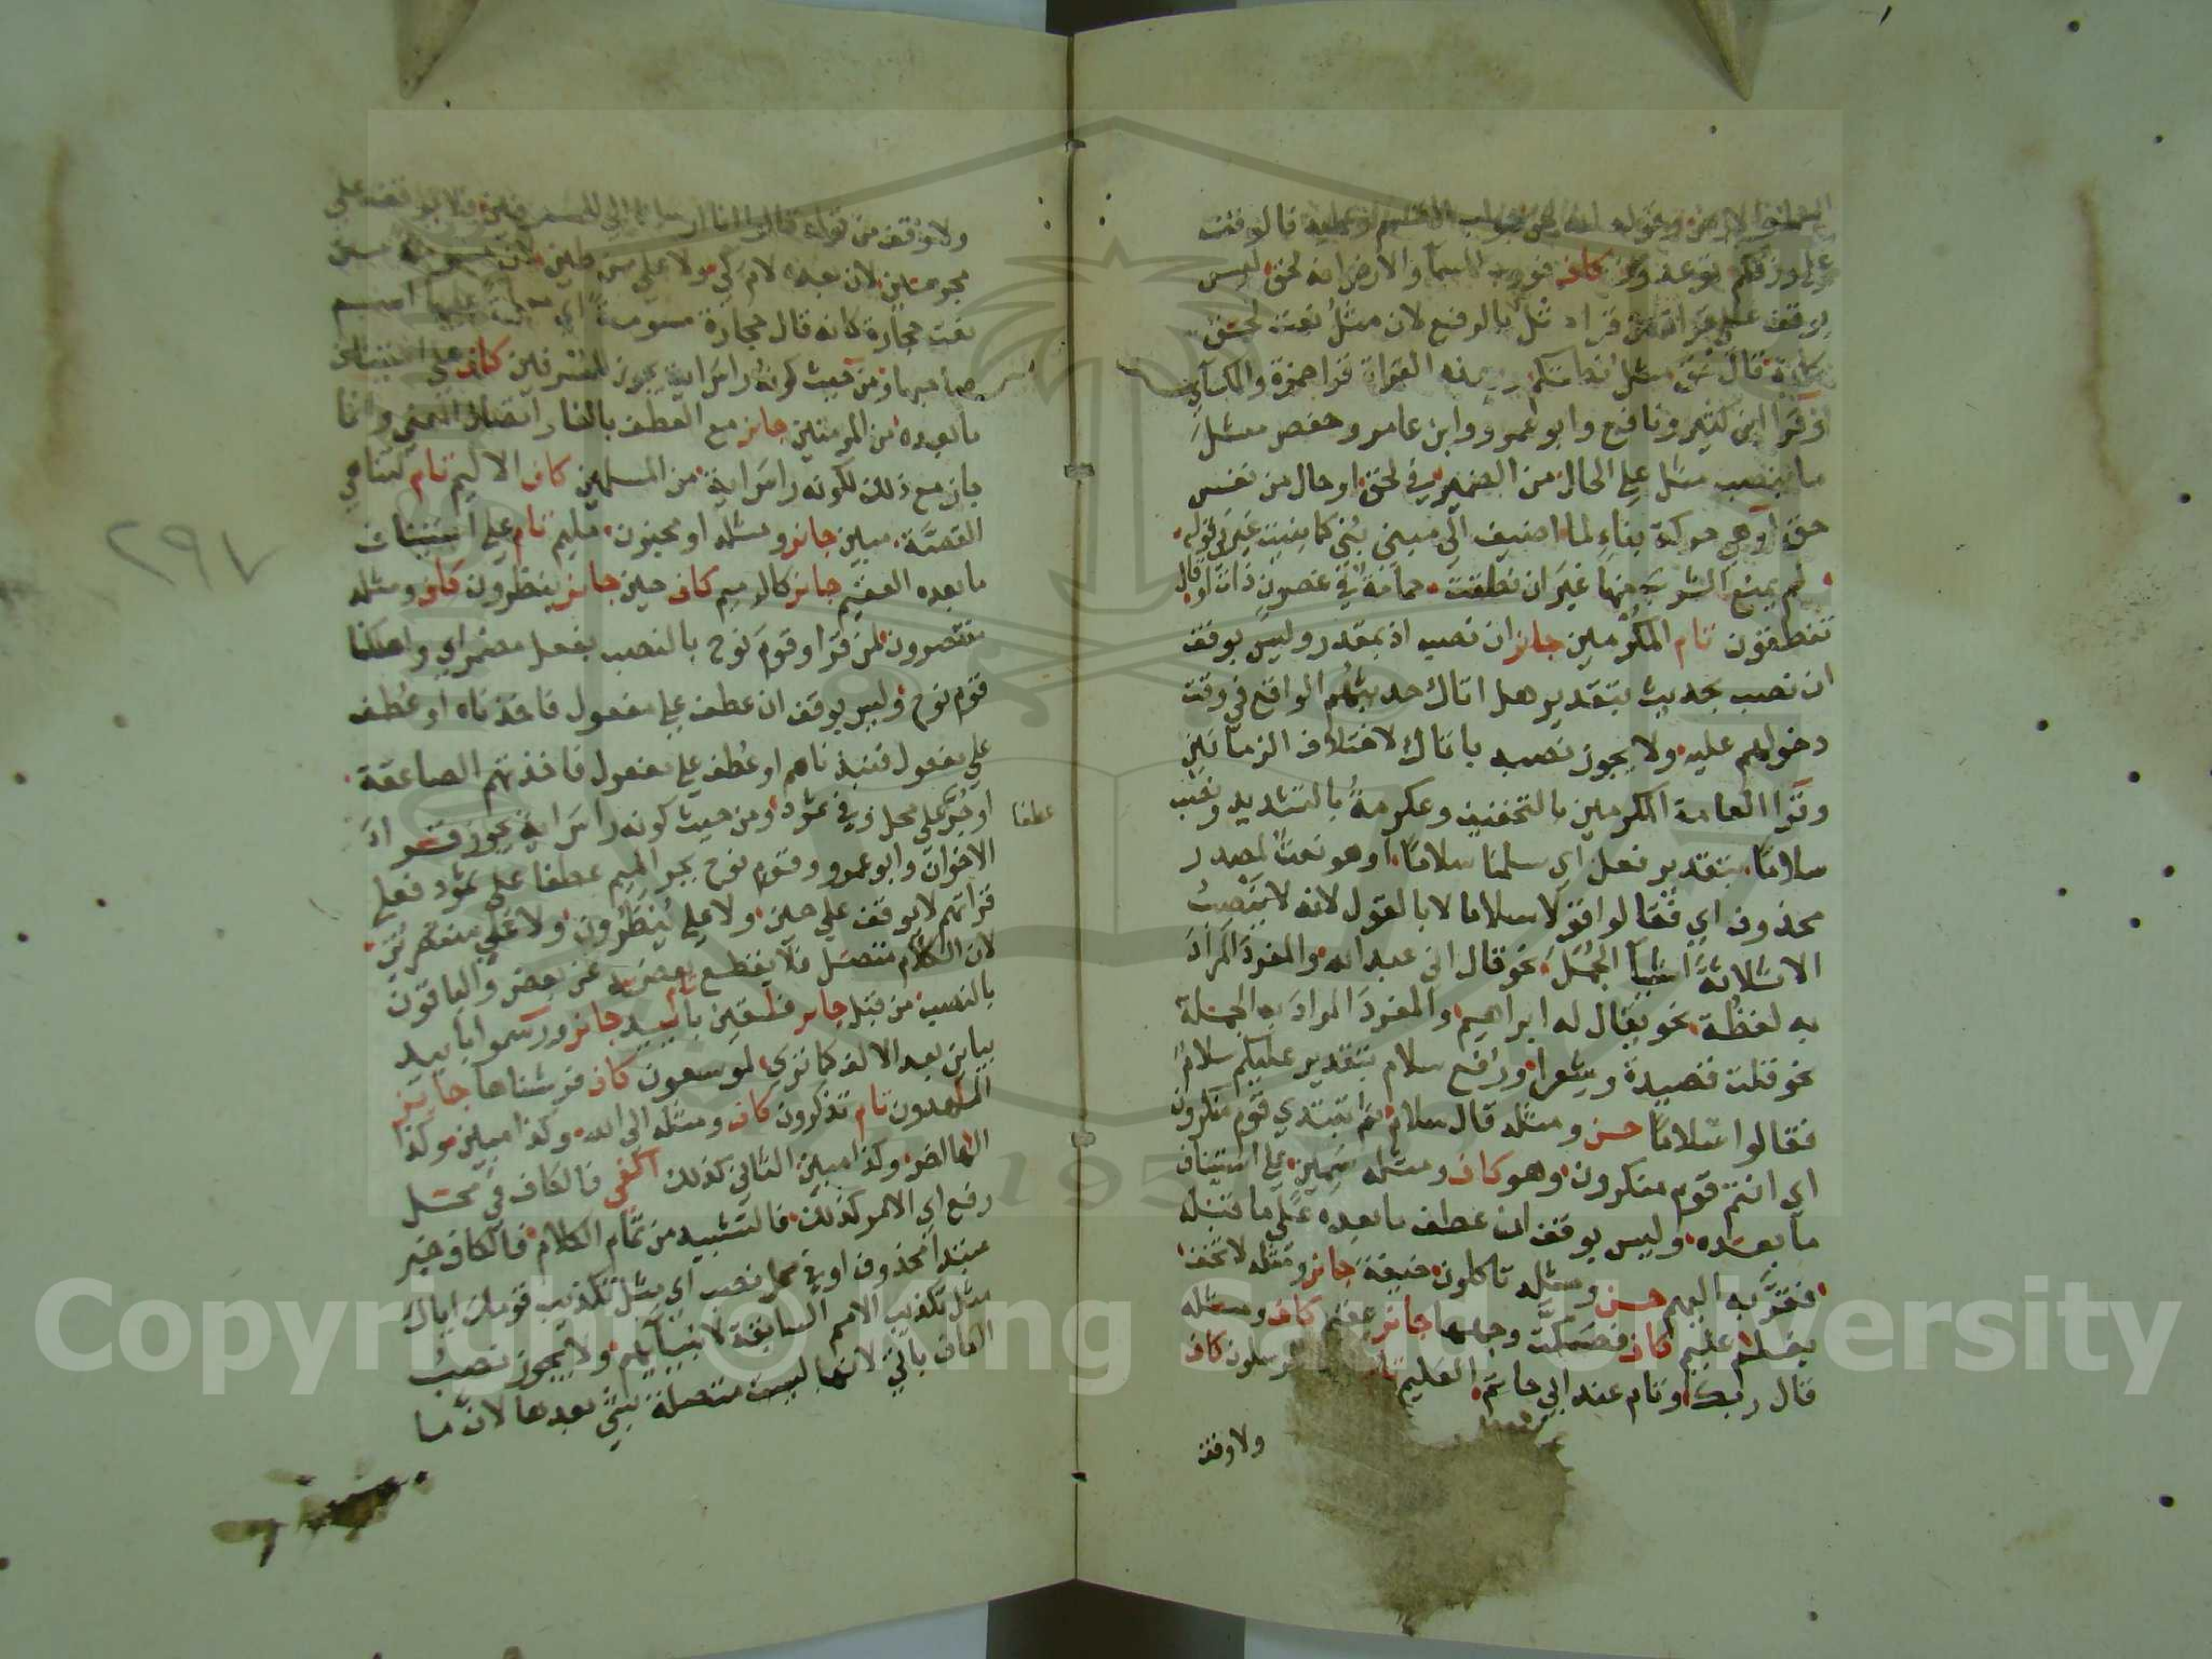 السماء والارض وقوله انه لحق جواب القسم وعليه فالوقف
على رزقكم توعدون كاف فورب السما والارض انه لحق ليس
بوقف على قراة من قرا مثل بالرفع لان مثل نعت لحق
كانه قال حق مثل نطقكم وبهذه القراة قرا حمزة والكسآي
وقرا ابن كثير ونافع وابو عمرو وابن عامر وحفص مثل
ما بنصب مثل علي الحال من الضمير في لحق او حال من نفس
حق او هي حركة بناءٍ لما اضيف الي مبني بني كما بنيت غير في قوله
لم يمنع الشرب منها غير ان نطقت حمامة في غصون ذات اوقال
تنطقون تام المكرمين جايز ان نصب اذ بمقدر وليس بوقف
ان نصب بحديث بتقدير هل اتاك حديثهم الواقع في وقت
دخولهم عليه ولا يجوز نصبه باتاك لاختلاف الزمانين
وقرا العامة المكرمين بالتخفيف وعكرمة بالتشديد ونصب
سلاما بتقدير فعل اي سلمنا سلاما او هو نعت لمصدر
محذوف اي فقالوا قولا سلاما لا بالقول لانه لا ينصب
الا ثلاثة اشيآ الجمل نحو قال اني عبد الله والمفرد المراد
به لفظه نحو يقال له ابراهيم والمفرد المراد به الجملة
نحو قلت قصيدة وشعرا ورفع سلام بتقدير عليكم سلام
فقالوا سلاما حسن ومثله قال سلام ثم تبتدي قوم منكرون
اي انتم قوم منكرون وهو كاف ومثله سمين علي استيناف
ما بعده وليس بوقف ان عطف ما بعده علي ما قبله
فقربه اليهم حسن ومثله تاكلون خيفة جايز ومثله لا تخف
بغلام عليم كاف فصكت وجهها جايز عقيم كاف ومثله
قال ربك وتام عند ابي حاتم العليم تام المرسلون كاف
ولا وقف
ولا وقف من قوله قالوا انا ارسلنا الي للمسرفين فلا يوقف علي
مجرمين لان بعده لام كي ولا علي من طين لان مسومة من
نعت حجارة كانه قال حجارة مسومة اي معلمة عليها اسم
صاحبها ومن حيث كونه راس اية يجوز للمسرفين كاف علي استيناف
ما بعده من المومنين جايز مع العطف بالفا واتصال المعني وانما
جاز مع ذلك لكونه راس اية من المسلمين كاف الاليم تام لتناهي
القصة مبين جايز ومثله او مجنون مليم تام علي استيناف
ما بعده العقيم جايز كالرميم كاف حين جايز ينظرون كاف ومثله
منتصرون لمن قرا وقوم نوح بالنصب بفعل مضمر اي واهلكنا
قوم نوح وليس بوقف ان عطف علي مفعول فاخذناه او عطف
علي مفعول فنبذناهم او عطف علي مفعول فاخذتهم الصاعقة
او جر علي محل وفي ثمود ومن حيث كونه راس اية يجوز وقرا
عطفا
الاخوان وابو عمرو وقوم نوح بجر الميم عطفا علي ثمود فعلي
قراتهم لا يوقف علي حين ولا علي ينظرون ولا علي منتصرين
لان الكلام متصل فلا يقطع بعضه عن بعض والباقون
بالنصب من قبل جايز فسقين تام باييد جايز ورسموا باييد
بياين بعد الالف كما تري لموسعون كاف فرشناها جايز
الماهدون تام تذكرون كاف ومثله الي الله وكذا مبين وكذا
الها اخر وكذا مبين الثاني كذلك اكفي فالكاف في محل
رفع اي الامر كذلك فالتشبيه من تمام الكلام فالكاف خبر
مبتدا محذوف او في محل نصب اي مثل تكذيب قومك اياك
مثل تكذيب الامم السابقة لانبيآيهم ولا يجوز نصب
الكاف باتي لانها ليست متصلة بشي بعدها لان ما
٢٩٧
Copyright © King Saud University
1957